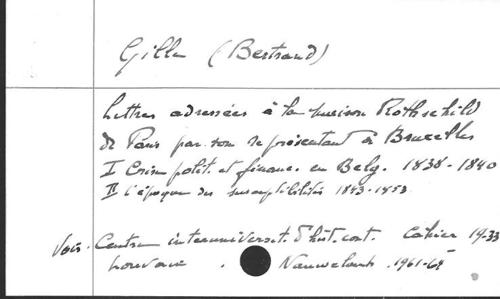 Gille (Bertrand)
Lettres adressées à la maison Rothschild
de Paris par son représentant à Bruxelles
I Crise polit. et financ. en Belg. 1838-1840
II l'époque des susceptibilités 1843-1853
Voir. Centre interuniversit. d'hist. cont. Cahier 19-33
Louvain . Nauwelaerts . 1961-65